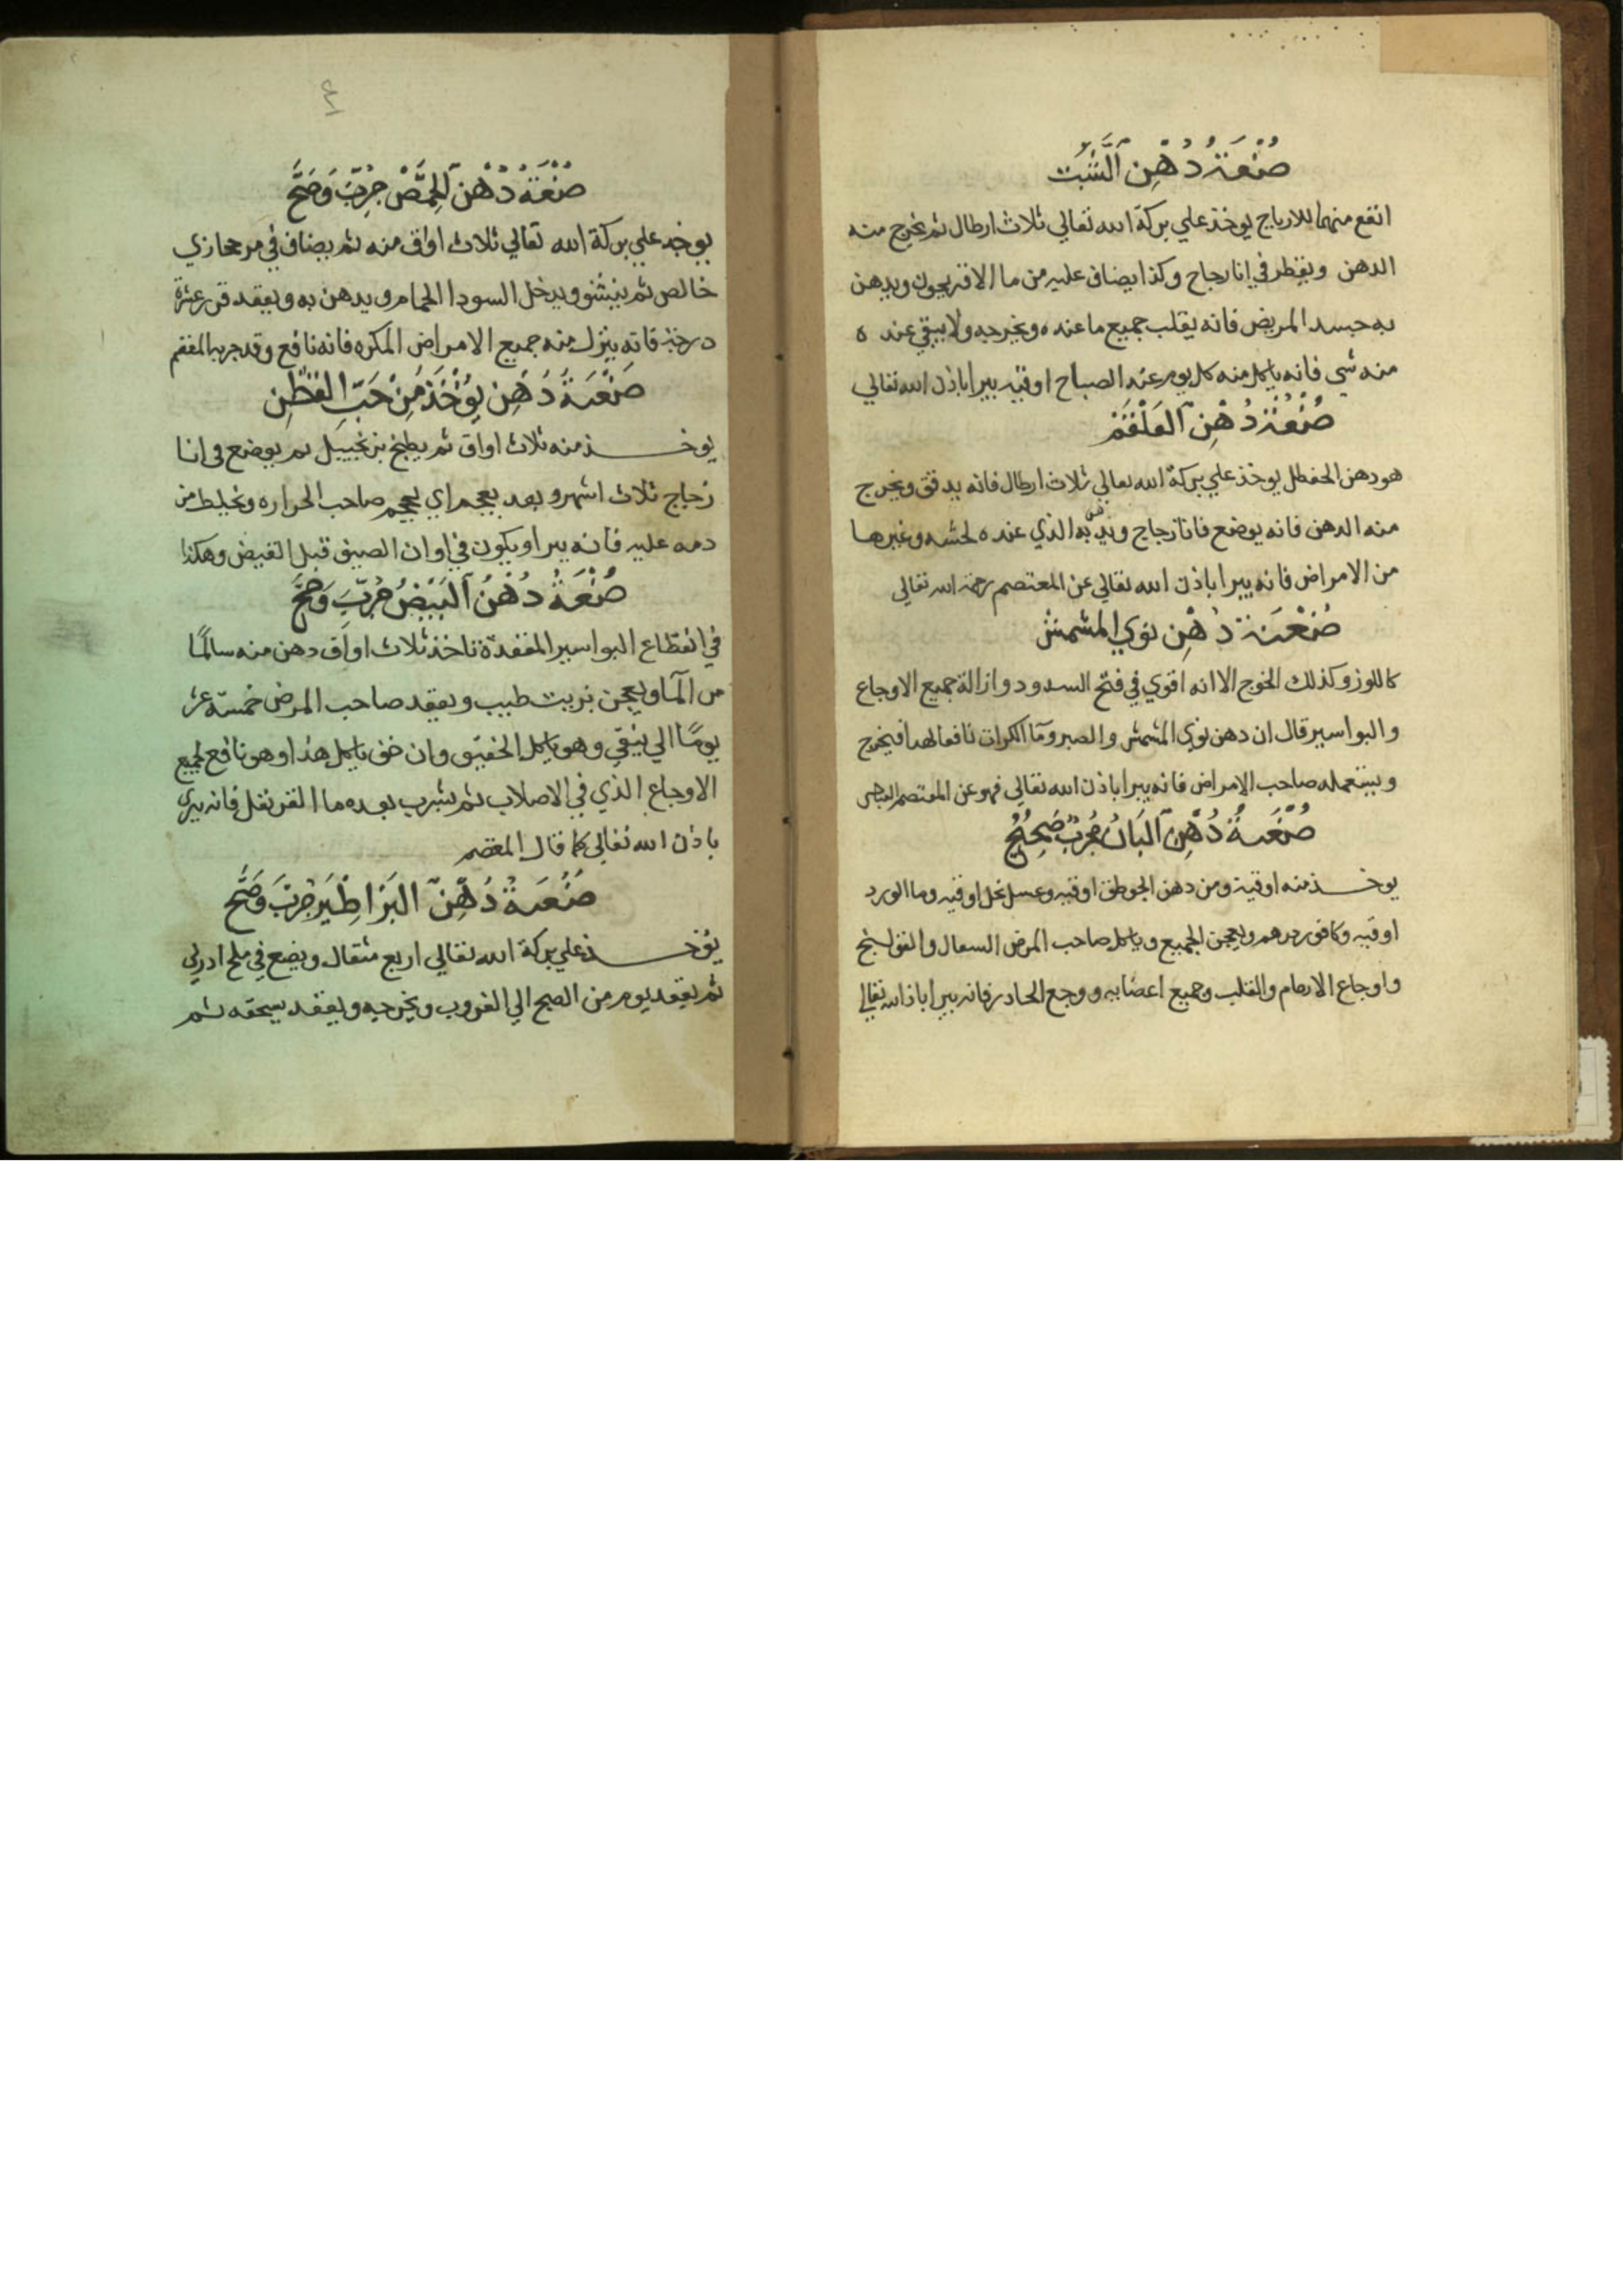 صنعة دهن الشبت
انفع منهما للارياح يوخذ علي بركة الله تعالي ثلاث ارطال ثم يخرج منه
الدهن ويقطر في انا زجاج وكذا يضاف عليه من ما الافريجون ويدهن
به جسد المريض فانه يقلب جميع ما عنده ويخرجه ولا يبقي عنده
منه شي فانه ياكل منه كل يوم عند الصباح اوقيه يبرا باذن الله تعالي
صنعة دهن العلقم
هو دهن الحنظل يوخذ علي بركة الله تعالي ثلاث ارطال فانه يدقق ويخرج
منه الدهن فانه يوضع فانا زجاج به الذي عنده لحشه وغيرها
من الامراض فانه يبرا باذن الله تعالي عن المعتصم رحمة الله تعالي
صنعة دهن نوي المشمش
كاللوز وكذلك الخوج الا انه اقوي في فتح السدود وازالة جميع الاوجاع
والبواسير قال ان دهن نوي المشمش والصبر وما الكرات نافعا لهدا فيخرج
ويستعمله صاحب الامراض فانه يبرا باذن الله تعالي فهو عن المعتصم
صنعة دهن البان مجرب صحيح
يوخذ منه اوقية ومن دهن اوقيه وعسل نحل اوقيه وما الورد
اوقيه وكافور درهم ويعجن الجميع وياكل صاحب المرض السعال
واوجاع الارحام والقلب وجميع اعضابه ووجع الحادر فانه يبرا باذ الله تعالي
٤
صنعة دهن الحمص جرب وصح
يوخد علي بركة الله تعالي ثلاث اواق منه ثم يضاف في مر حجازي
خالص ثم ويدخل السودا الحمام ويدهن به ويقعد عشرة
درجة فانه ينزل منه جميع الامراض المكره فانه نافع وقد جربه
صنعة دهن يؤخذ من حب القطن
يوخذ منه ثلاث اواق ثم يطبخ بزنجبيل ثم يوضع في انا
زجاج ثلاث اشهر وبعد يعجم اي يحجم صاحب الحراره ويخلط من
دمه عليه فانه يبرا ويكون في اوان الصيف قبل الغيض وهكذا
صنعة دهن البيض جرب وصح
في انقطاع البواسير المقفدة تاخذ ثلاث اواق دهن منه سالما
من الما ويعجن بزيت طيب ويقعد صاحب المرض خمسة عشر
يوما الي ينقي وهو ياكل الخفيف وان خف ياكل هذا وهو نافع لجميع
الاوجاع الذي في الاصلاب ثم يشرب بعده ما القرنفل فانه يبري
باذن الله تعالي كما قال المعتصم
صنعة دهن البزاطير جرب وصح
يؤخذ علي بركة الله تعالي اربع مثقال ويضع في ملح
ثم يقعد يوم من الصبح الي الغروب ويخرجه ويقعد يسحقه ثم